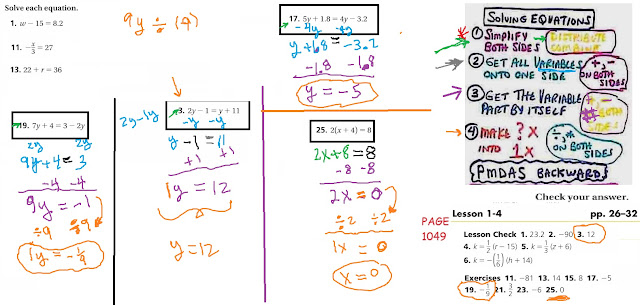 Solve each equation.
1. w − 15 = 8.2
11. −z/3 = 27
13. 22 + r = 36
9y ÷ (9)
19. 7y + 4 = 3 − 2y
2y 2y
9y + 4 = 3
-4 -4
9y = -1
÷9 ÷9
1y = -1/9
2y-1y
3. 2y − 1 = y + 11
-y -y
y - 1 = 11
+1 +1
1y = 12
y = 12
17. 5y + 1.8 = 4y − 3.2
-4y -4y
y + 1.8 = -3.2
-1.8 -1.8
y = -5
25. 2(x + 4) = 8
2x + 8 = 8
-8 -8
2x = 0
÷2 ÷2
1x = 0
x = 0
SOLVING EQUATIONS
① SIMPLIFY BOTH SIDES
DISTRIBUTE
COMBINE
② GET ALL VARIABLES ONTO ONE SIDE
+, - ON BOTH SIDES
③ GET THE VARIABLE PART BY ITSELF
+, -
BOTH SIDES
④ MAKE ? X INTO 1X
÷, * ON BOTH SIDES
PMDAS BACKWARD
Check your answer.
PAGE 1049
Lesson 1-4 pp. 26–32
Lesson Check 1. 23.2 2. −90 3. 12
4. k = ½(r − 15) 5. k = ⅓(z + 6)
6. k = −(1/6)(h + 14)
Exercises 11. −81 13. 14 15. 8 17. −5
19. −1/9 21. 3/2 23. −6 25. 0